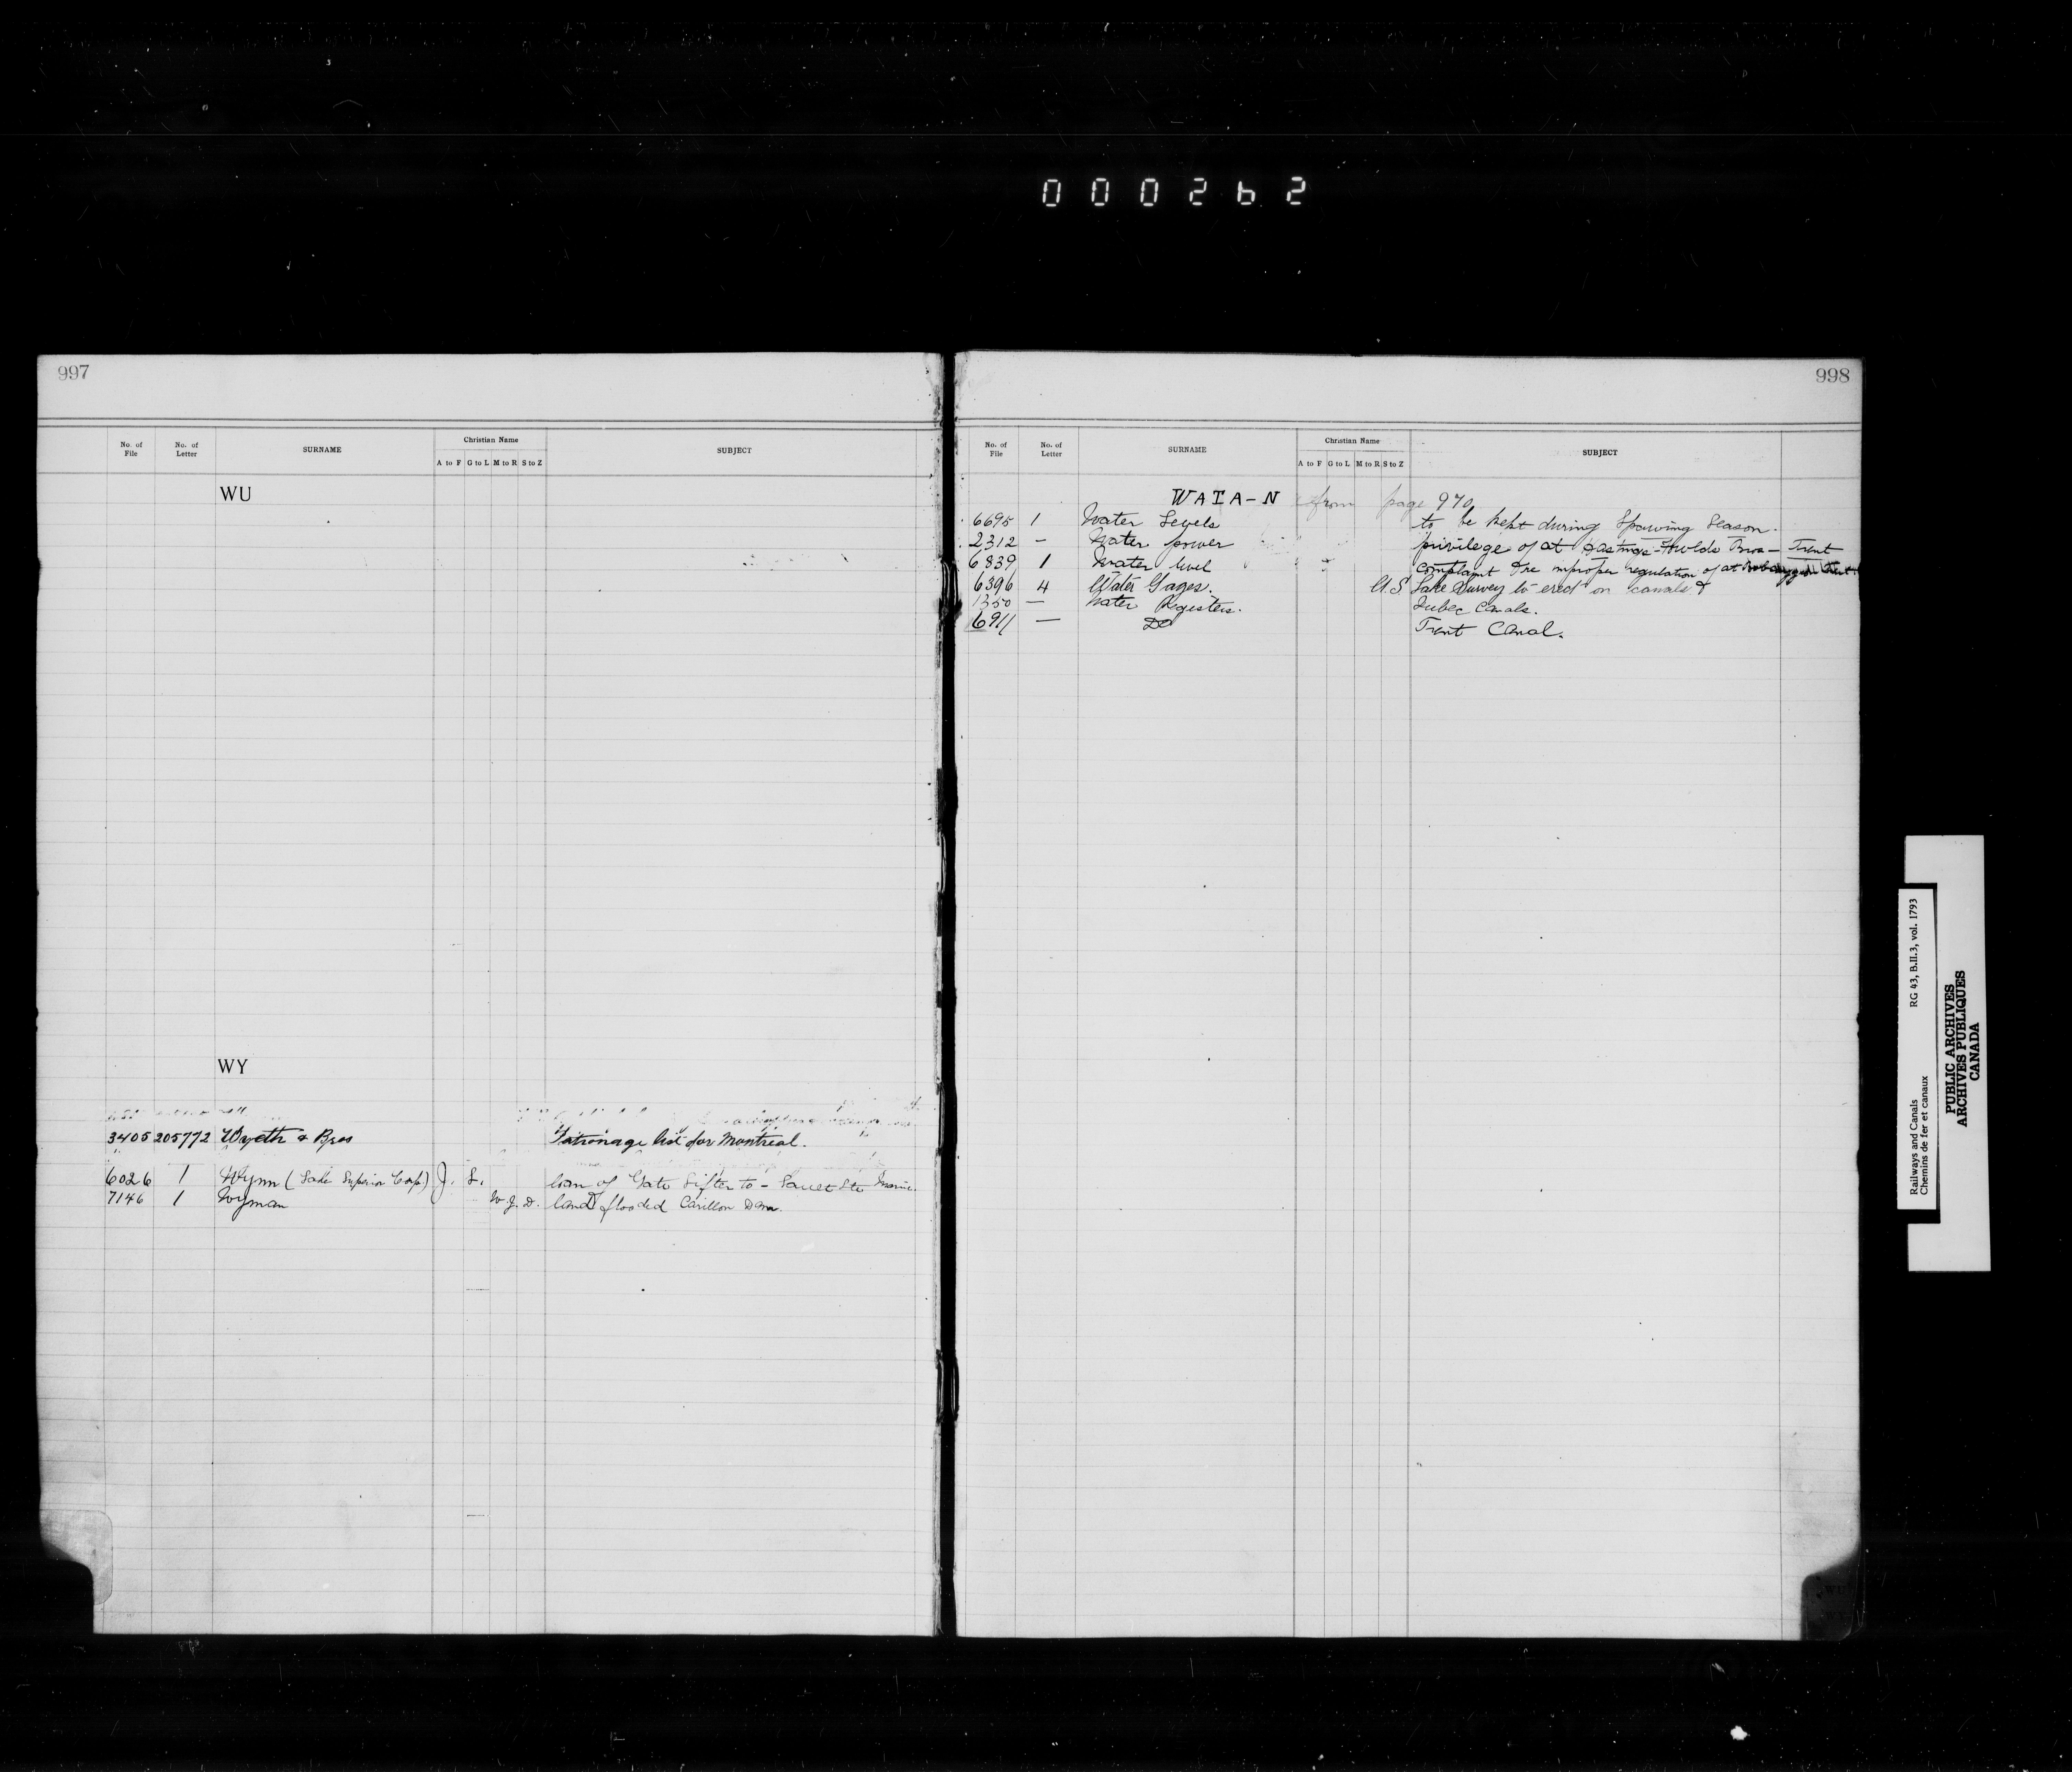 000262
997
No. of File
No. of Letter
SURNAME
Christian Name
A to F G to L M to R S to Z
SUBJECT
WU
WY
3405 205772 Wyeth & Bros Patronage list for Montreal.
6026 1 Wynn (Lake Superior Corp.) J. L. loan of Gate Lifter to - Sault Ste Marie.
7146 1 Wyman W. J. D. land flooded Carillon Dam.
998
No. of File
No. of Letter
SURNAME
Christian Name
A to F G to L M to R S to Z
SUBJECT
WATA-N from page 970
6695 1 Water Levels to be kept during Spawing Season.
2312 — Water power privilege of at Hastings - Fowlds Bros — Trent
6839 1 Water level Complaint re improper regulation of at
6396 4 Water Gages. U.S Lake Survey to ered on canals &
1350 — Water Registers. Quebec Canals.
6911 — Do Trent Canal.
WU
Railways and Canals RG 43, B.II.3, vol. 1793
Chemins de fer et canaux
PUBLIC ARCHIVES
ARCHIVES PUBLIQUES
CANADA